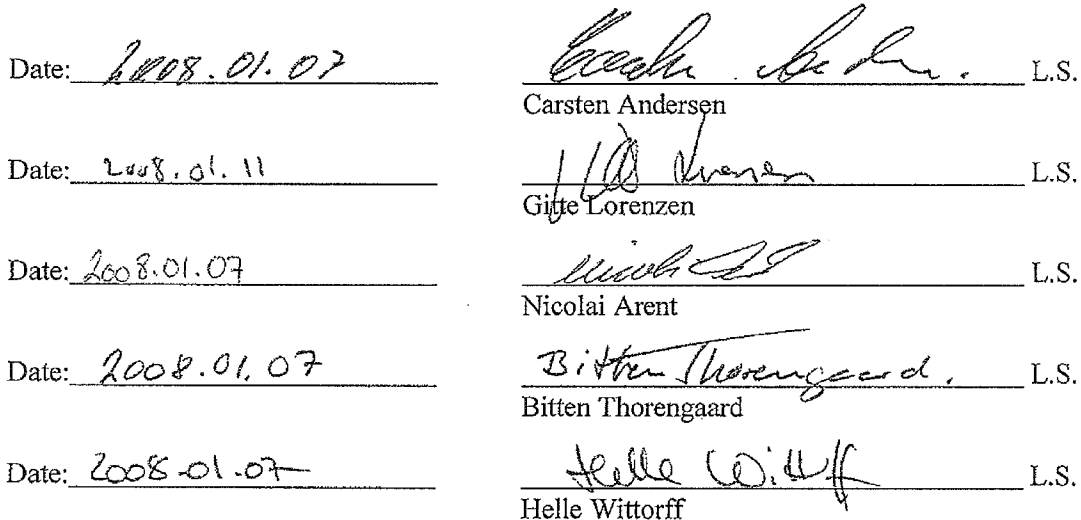 Date: 2008.01.07 L.S.
Carsten Andersen
Date: 2008.01.11 L.S.
Gitte Lorenzen
Date: 2008.01.07 L.S.
Nicolai Arent
Date: 2008.01.07 Bitten Thorengaard. L.S.
Bitten Thorengaard
Date: 2008-01-07 Helle Wittorff L.S.
Helle Wittorff